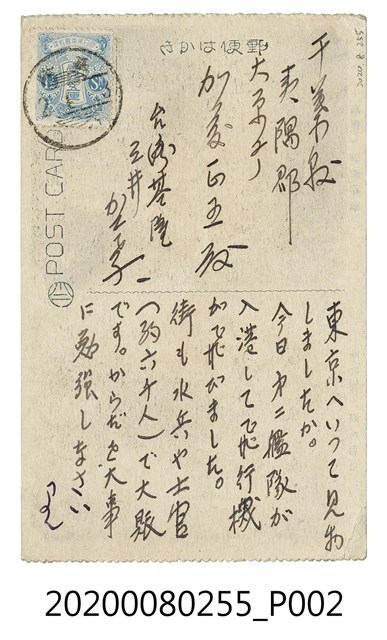 郵便はかき
POST CARD
千葉縣
夷隅郡
大原町
加藤正五殿
台湾基隆
三井
東京へいつて見物
しましたか。
今日第二艦隊が
入港して飛行機
が飛びました。
街も水兵や士官
(約六千人)で大賑
です。からだを大事
に勉強しなさい
20200080255_P002